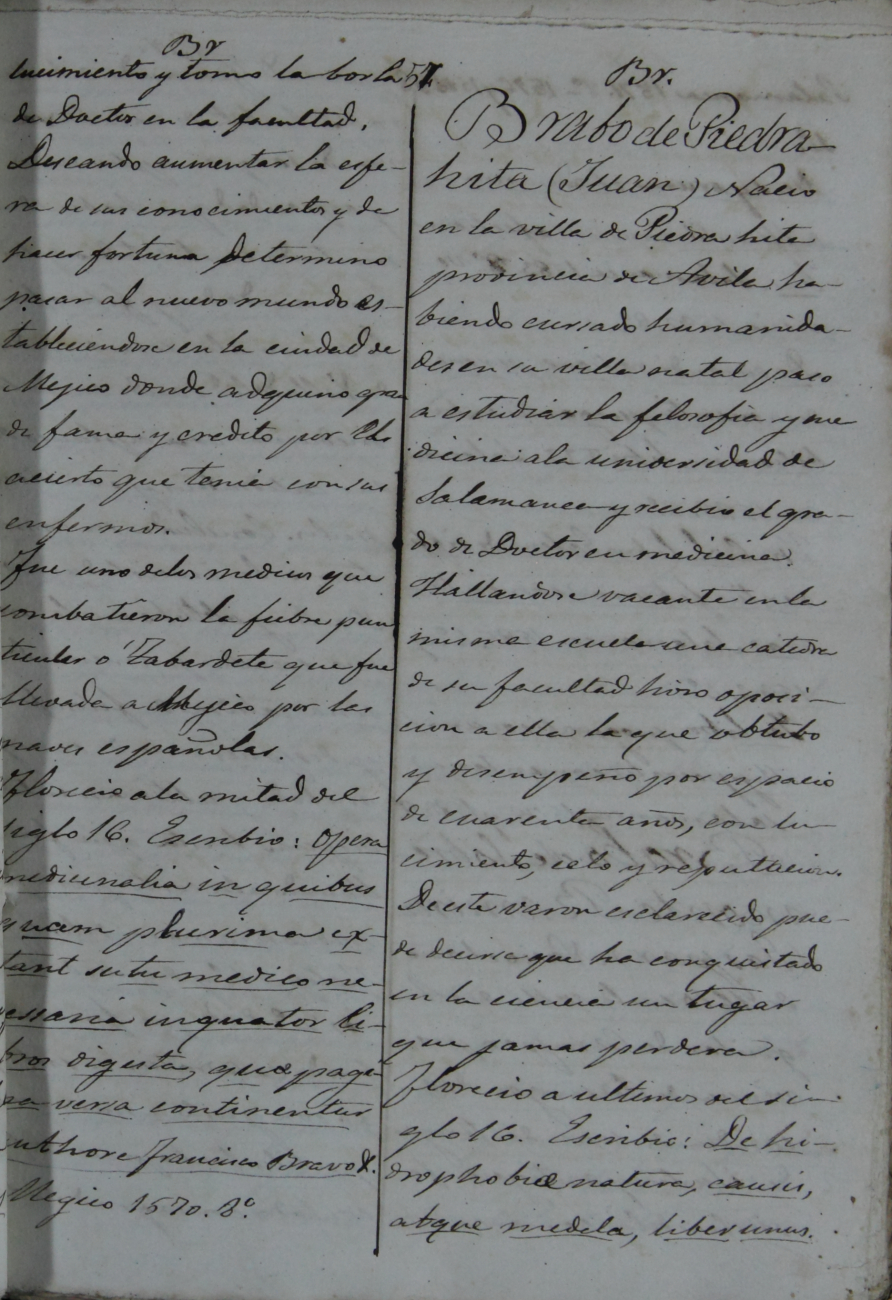 Br
lucimiento y tomo la borla
de Doctor en la facultad.
Deseando aumentar la esfe-
ra de sus conocimientos y de
hacer fortuna determino
pasar al nuevo mundo es-
tableciendose en la ciudad de
Mejico donde adquirio gran
de fama y credito por el
acierto que tenia con sus
enfermos.
Fue uno de los medicos que
combatieron la fiebre pun
ticular o Tabardete que fue
llevada a Mejico por las
naves españolas.
Florecio a la mitad del
siglo 16. Escribio: Opera
medicinalia in quibus
quam plurima ex-
tant scitu medico ne-
cessaria in quator li-
bros digesta, quæ pagi
na versa continentur
authore Francisco Bravo &.
Megico 1570. 8º.
57
Br.
Brabo de Piedra-
hita (Juan) Nacio
en la villa de Piedra hita
provincia de Avila ha-
biendo cursado humanida-
des en su villa natal paso
a estudiar la filosofia y me
dicina a la universidad de
Salamanca y recibio el gra-
do de Doctor en medicina.
Hallandose vacante en la
misma escuela una catedra
de su facultad hizo oposi-
cion a ella la que obtubo
y desempeño por espacio
de cuarenta años, con lu-
cimiento, celo y reputacion.
De este varon esclarecido pue-
de decirse que ha conquistado
en la ciencia un lugar
que jamas perdera.
Florecio a ultimos del si-
glo 16. Escribio: De hi-
drophobiæ natura, causis,
atque medela, liber unus.